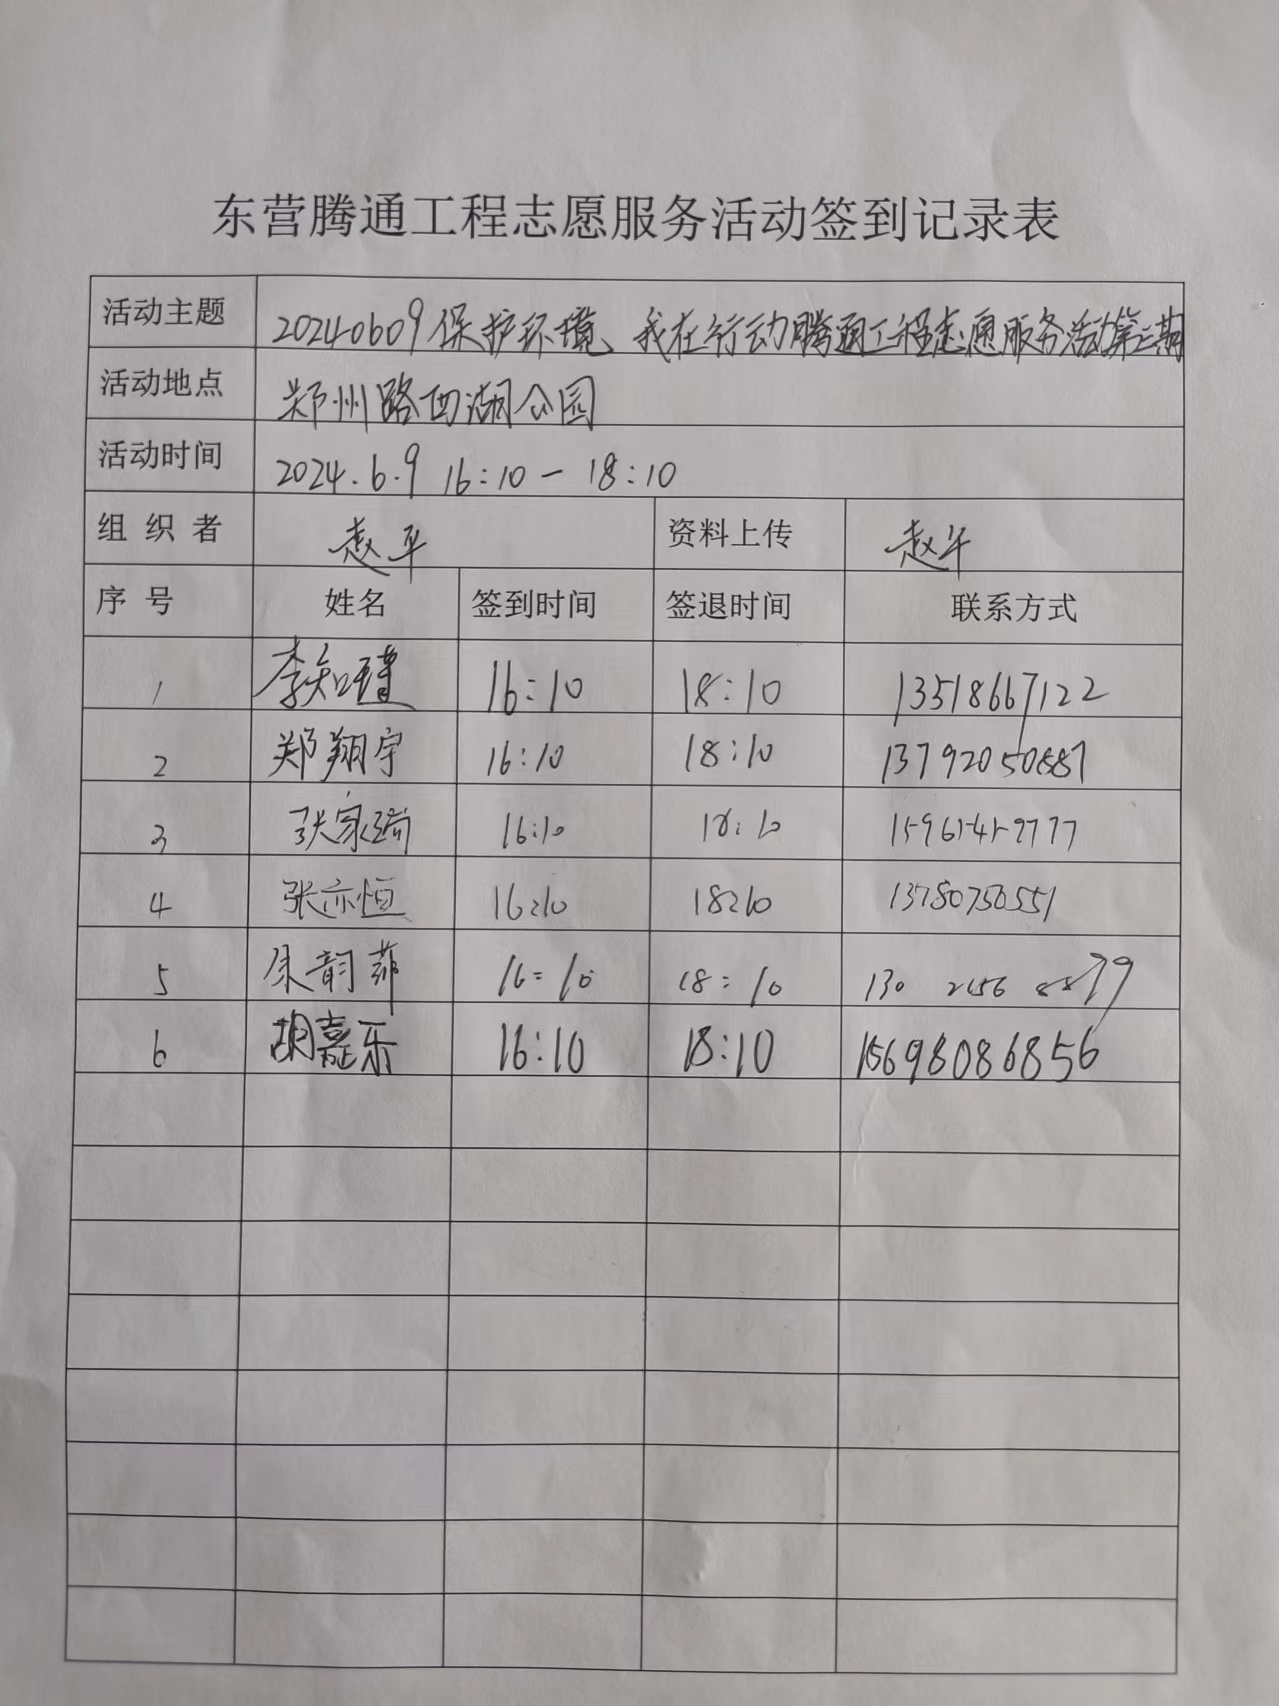 东营腾通工程志愿服务活动签到记录表
活动主题 20240609保护环境、我在行动腾通工程志愿服务活动第二期
活动地点 郑州路西湖公园
活动时间 2024.6.9 16:10-18:10
组织者 赵平 资料上传 赵平
序号 姓名 签到时间 签退时间 联系方式
1 李知瑾 16:10 18:10 13518667122
2 郑翔宇 16:10 18:10 13792050887
3 张家瑞 16:10 18:10
4 张亦恒 16:10 18:10 13780750551
5 朱韵菲 16:10 18:10
6 胡嘉乐 16:10 18:10 15698086856